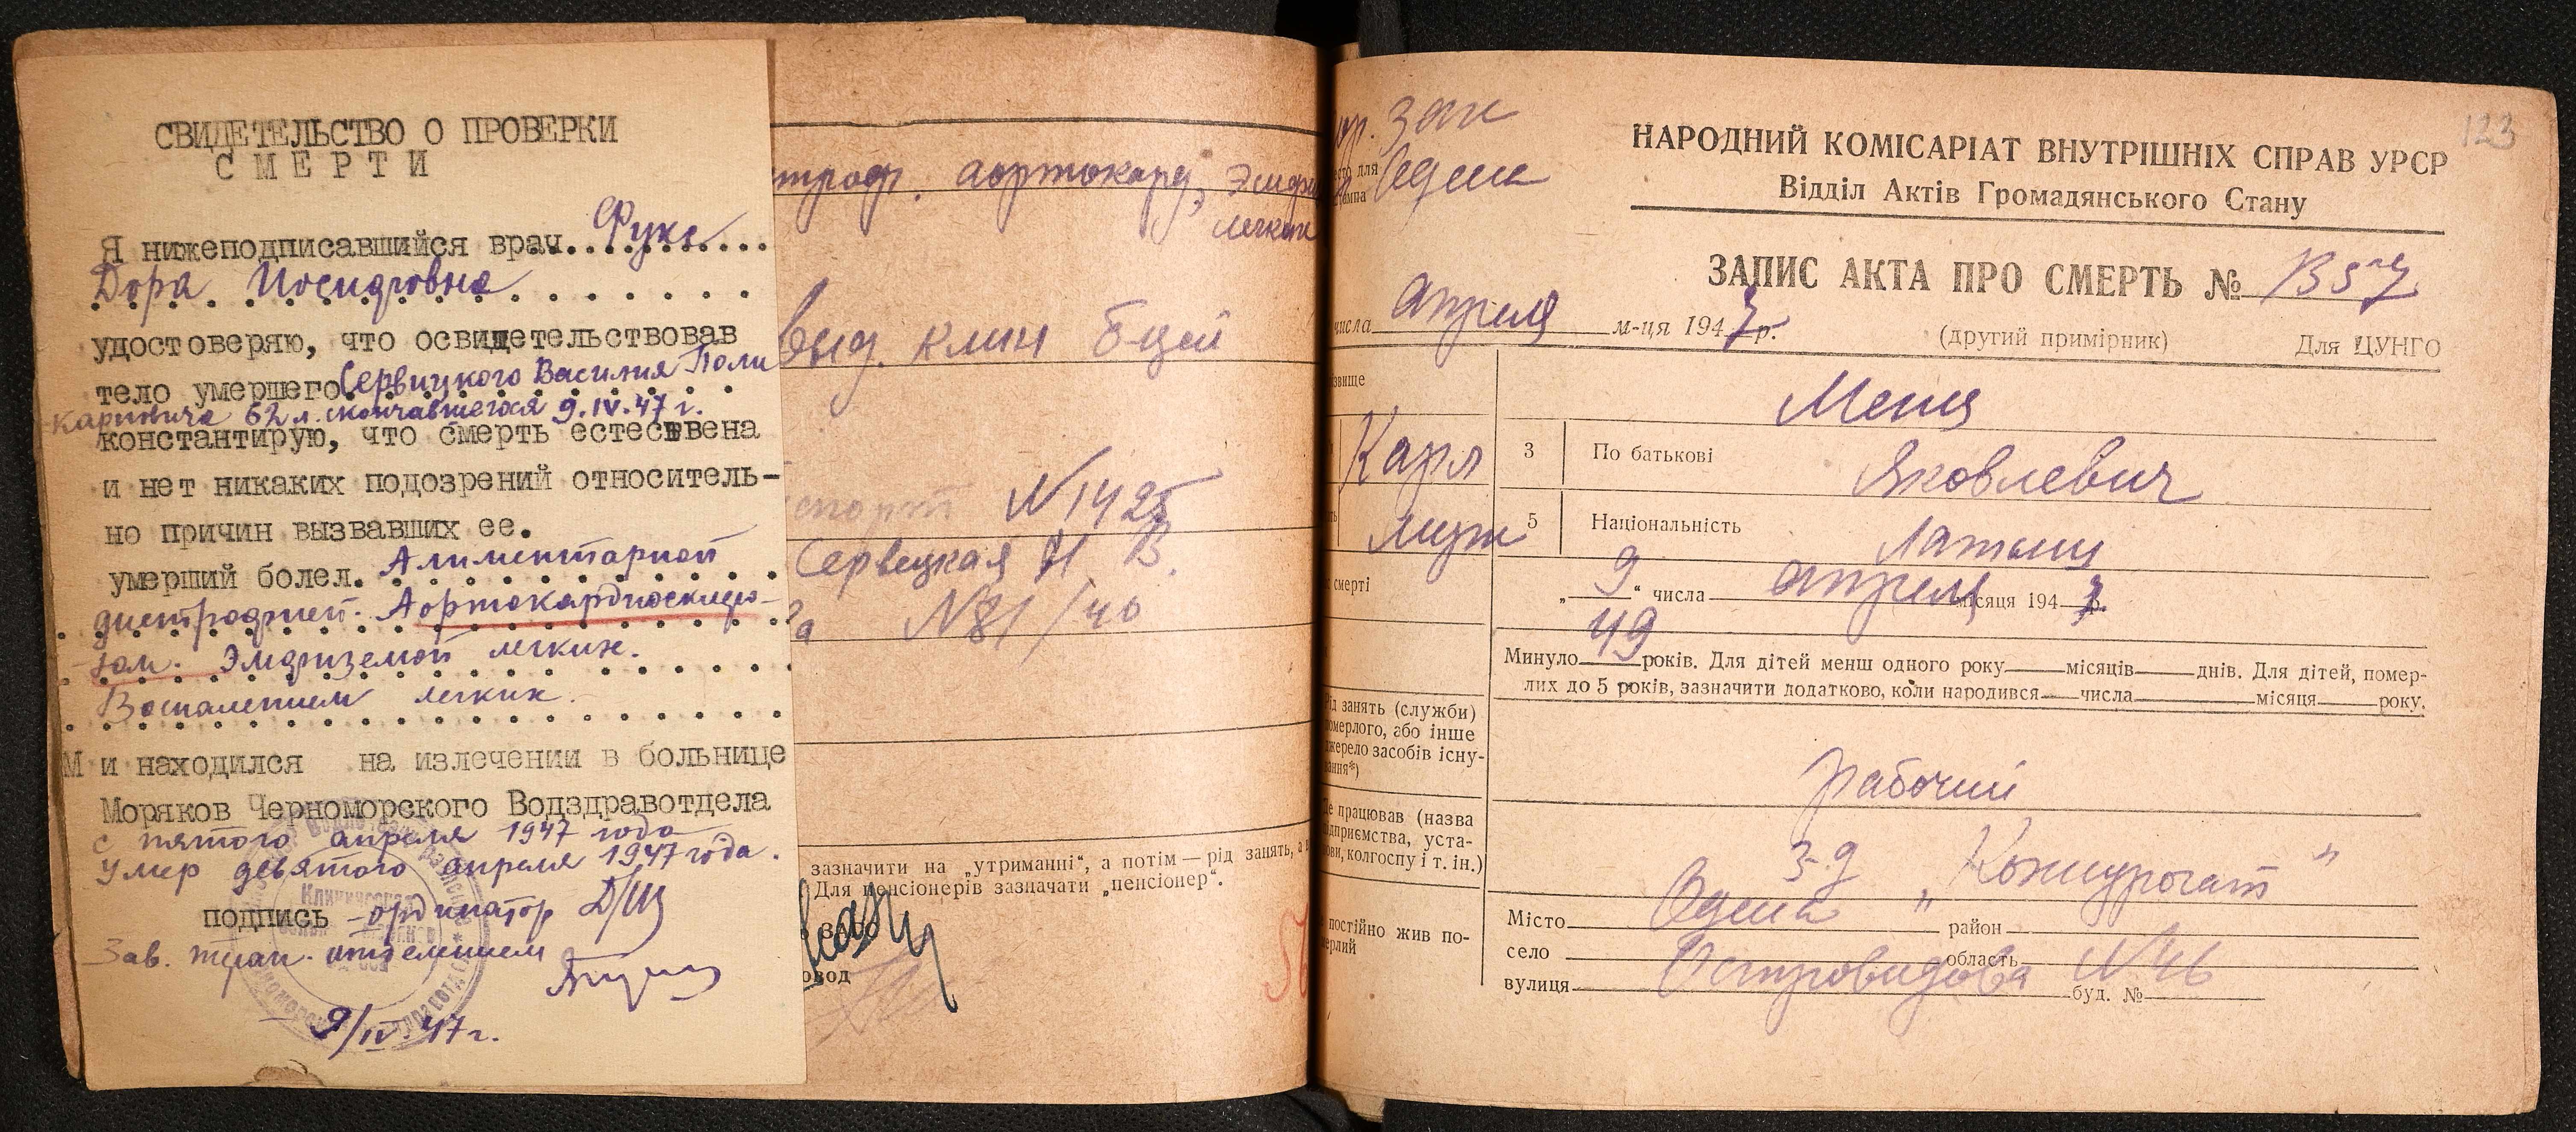 СВИДЕТЕЛЬСТВО О ПРОВЕРКИ
СМЕРТИ
Я нижеподписавшийся врач. Фукс
Дора Иосифовна
удостоверяю, что освидетельствовав
тело умершего Сервицкого Василия Поли
карповича 62 л. скончавшегося 9.IV.47 г.
константирую, что смерть естественна
и нет никаких подозрений относитель-
но причин вызвавших ее.
умерший болел. Алиментарной
дистрофией. Аортокардиосклеро-
зом. Эмфиземой легких.
Воспалением легких.
и находился на излечении в больнице
Моряков Черноморского Водздравотдела
с пятого апреля 1947 года
умер девятого апреля 1947 года.
подпись - ординатор
Зав. терап. отделением
9/IV.47 г.
аортокард, Эмфиз
легких
выд. клин б-цей
спорт N 1425
Сервецкая Н В.
N 81/40
зазначити на „утриманні“, а потім — рід занять, а
Для пенсіонерів зазначати „пенсіонер“.
овод
123
гр. зак
сто для
тампа
Одесса
НАРОДНИЙ КОМІСАРІАТ ВНУТРІШНІХ СПРАВ УРСР
Відділ Актів Громадянського Стану
ЗАПИС АКТА ПРО СМЕРТЬ №
числа апреля м-ця 1947 р.
(другий примірник) Для ЦУНГО
звище Менц
Карл 3 По батькові Яковлевич
муж 5 Національність Латыш
смерті „ 9 “ числа апреля місяця 1947
Минуло 49 років. Для дітей менш одного року місяців днів. Для дітей, помер-
лих до 5 років, зазначити додатково, коли народився числа місяця року.
ід занять (служби)
омерлого, або інше
жерело засобів існу-
ання*)
рабочий
е працював (назва
дприємства, уста-
ови, колгоспу і т. ін.)
з-д „
“
постійно жив по-
ерлий
Місто Одесса район
село область
вулиця Островидова N 46 буд. №